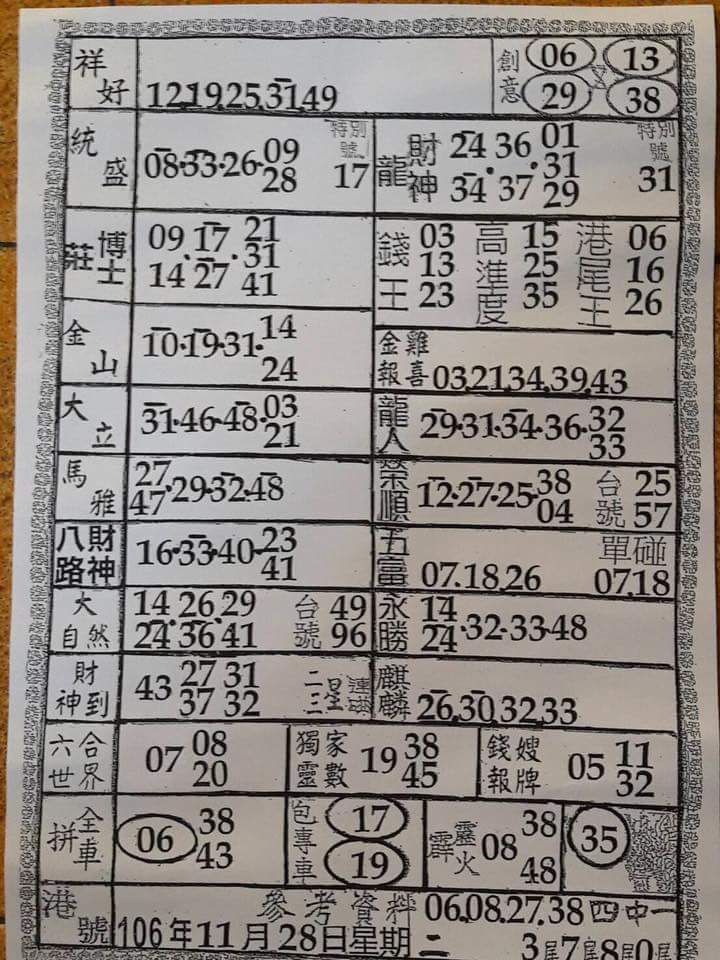 祥好 12.19.25.31.49
創意 06 13 29 38
統盛 08·33·26·09 28 特別號 17
龍 財神 24 36 01 34 37 31 29 特別號 31
莊博士 09 17 21 14 27 31 41
錢王 03 13 23 高進度 15 25 35 港尾王 06 16 26
金山 10·19·31·14 24
金雞報喜 03.21.34.39.43
大立 31·46·48·03 21
龍人 29·31·34·36·32 33
馬雅 27 47·29·32·48
榮順 12·27·25·38 04 台號 25 57
八路財神 16·33·40·23 41
五富 07.18.26 單碰 07.18
大自然 14 26 29 24 36 41 台號 49 96
永勝 14 24·32·33·48
財神到 43 27 31 37 32 二三星連碰
麒麟 26.30.32.33
六合世界 07 08 20
獨家靈數 19 38 45
錢嫂報牌 05 11 32
拼全車 06 38 43
包專車 17 19
霹靂火 08 38 48
35
港號 參考資料 06.08.27.38 四中一
106年11月28日星期二 3尾7尾8尾0尾